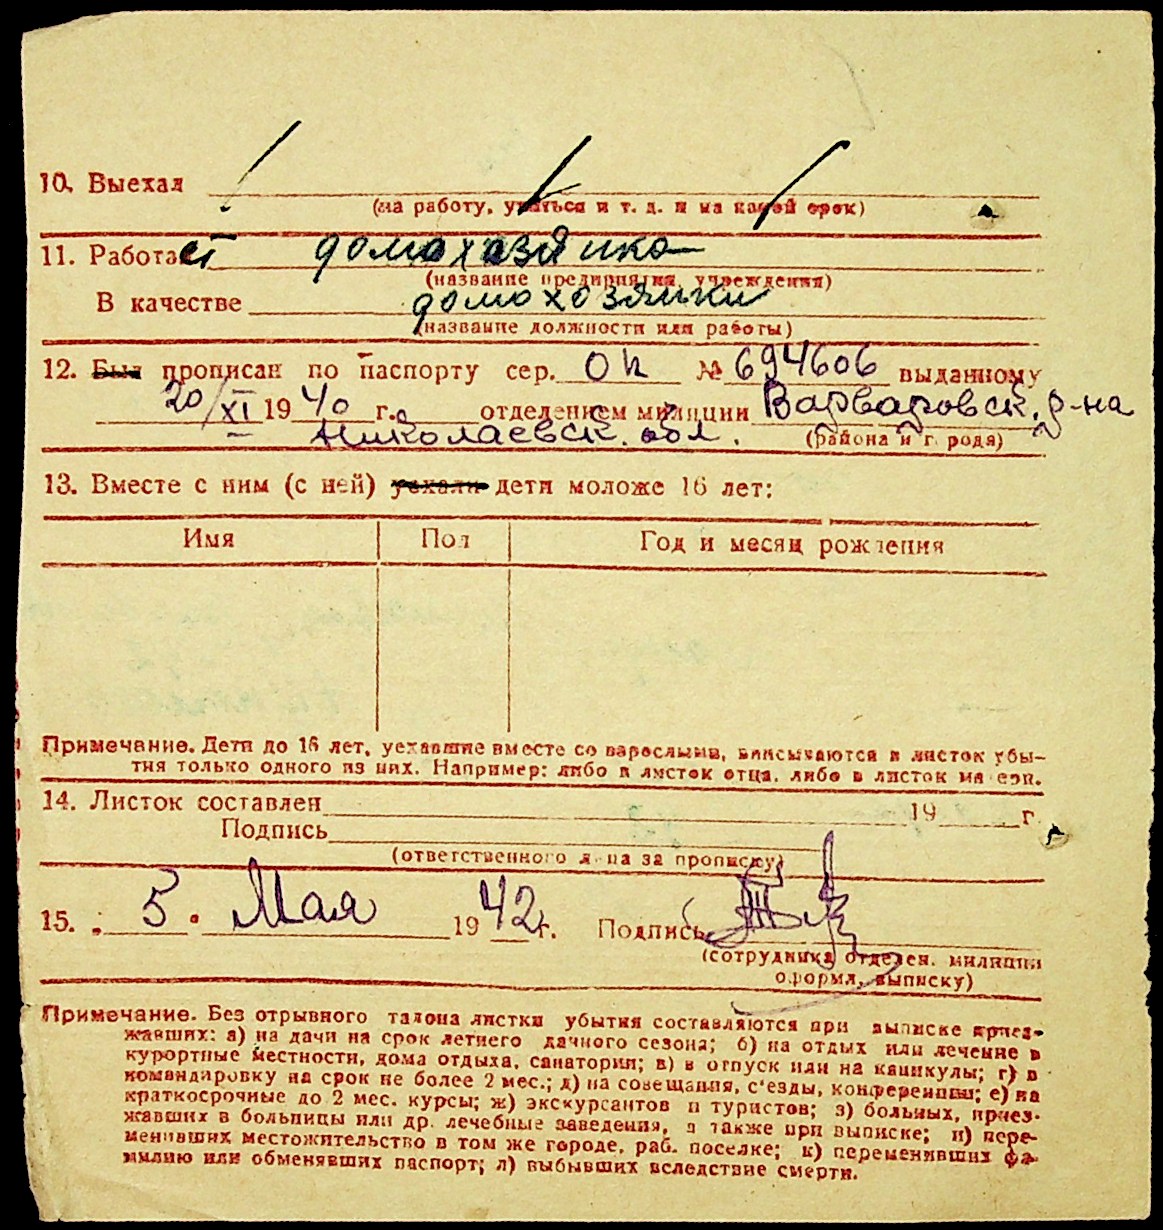 10. Выехал
(на работу, учиться и т. д. и на какой срок)
11. Работает домохозяйка
(название предприятия, учреждения)
В качестве домохозяйки
(название должности или работы)
12. Был прописан по паспорту сер. ОК № 694606 выданному
20/XI 1940 г. отделением милиции Варваровск. р-на
Николаевск. обл. (района и города)
13. Вместе с ним (с ней) уехали дети моложе 16 лет:
Имя Пол Год и месяц рождения
Примечание. Дети до 16 лет, уехавшие вместе со взрослыми, вписываются в листок убы-
тия только одного из них. Например: либо в листок отца, либо в листок матери.
14. Листок составлен 19 г.
Подпись
(ответственного лица за прописку)
15. 5 Мая 1942 г. Подпись
(сотрудника отделен. милиции
оформл. выписку)
Примечание. Без отрывного талона листки убытия составляются при выписке приез-
жавших: а) на дачи на срок летнего дачного сезона; б) на отдых или лечение в
курортные местности, дома отдыха, санатории; в) в отпуск или на каникулы; г) в
командировку на срок не более 2 мес.; д) на совещания, с'езды, конференции; е) на
краткосрочные до 2 мес. курсы; ж) экскурсантов и туристов; з) больных, приез-
жавших в больницы или др. лечебные заведения, а также при выписке; и) пере-
менивших местожительство в том же городе, раб. поселке; к) переменивших фа-
милию или обменявших паспорт; л) выбывших вследствие смерти.